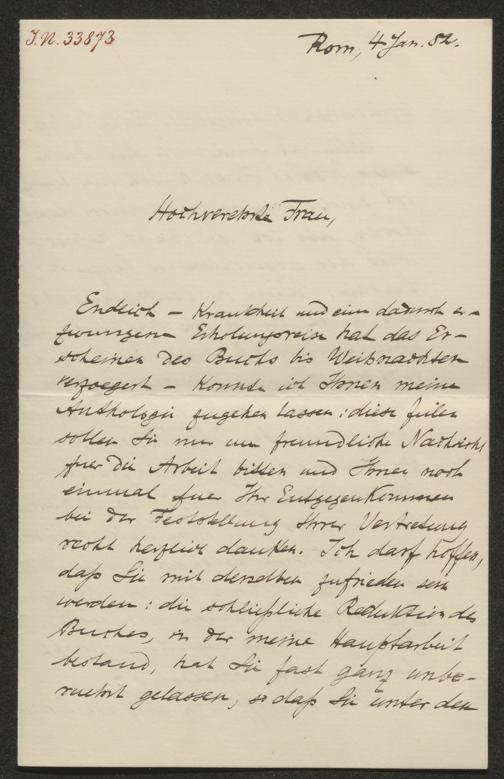 I.N. 33873
Rom, 4 Jan. 82.
Hochverehrte Frau,
Endlich – Krankheit und eine dadurch er-
zwungene Erholungsreise hat das Er-
scheinen des Buchs bis Weihnachten
verzoegert – konnte ich Ihnen meine
Anthologie zugehen lassen: diese Zeilen
sollen Sie nur um freundliche Nachsicht
fuer die Arbeit bitten und Ihnen noch
einmal fuer Ihr Entgegenkommen
bei der Feststellung Ihrer Vertretung
recht herzlich danken. Ich darf hoffen,
daß Sie mit derselben zufrieden sein
werden: die schließliche Reduktion des
Buches, in der meine Hauptarbeit
bestand, hat Sie fast ganz unbe-
ruehrt gelassen, so daß Sie unter den